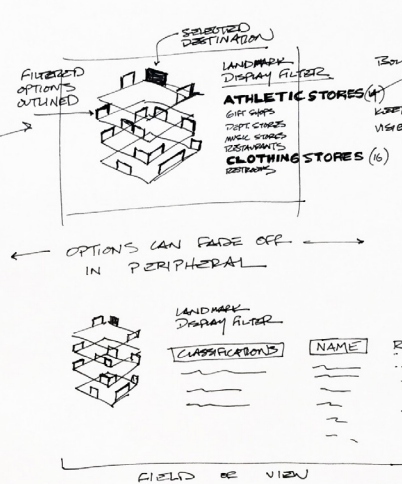 SELECTED
DESTINATION
FILTERED
OPTIONS
OUTLINED
LANDMARK
DISPLAY FILTER
ATHLETIC STORES (4)
GIFT SHOPS
DEPT. STORES
MUSIC STORES
RESTAURANTS
CLOTHING STORES (16)
RESTROOMS
OPTIONS CAN FADE OFF
IN PERIPHERAL
LANDMARK
DISPLAY FILTER
CLASSIFICATIONS
NAME
FIELD OF VIEW